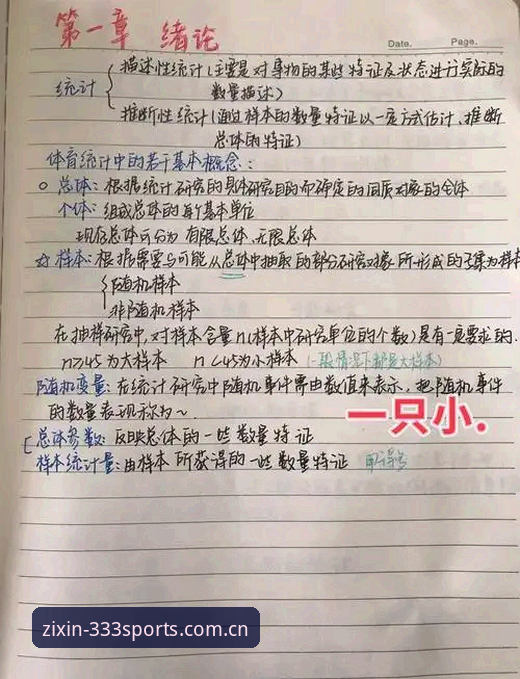 第一章 绪论
Date. Page.
统计
描述性统计(主要是对事物的某些特征及状态进行实际的
数量描述)
推断性统计(通过样本的数量特征以一定方式估计、推断
总体的特征)
体育统计中的若干基本概念:
总体:根据统计研究的具体研究目的而确定的同质对象的全体
个体:组成总体的每个基本单位
现存总体可分为 有限总体、无限总体
样本:根据需要与可能从总体中抽取的部分研究对象所形成的子集为样本
随机样本
非随机样本
在抽样研究中,对样本含量n(样本中研究单位的个数)是有一定要求的.
n≥45为大样本 n<45为小样本 (一般情况下都是大样本)
随机变量:在统计研究中随机事件需由数值来表示,把随机事件
的数量表现称为~.
一只小.
总体参数:反映总体的一些数量特征
样本统计量:由样本所获得的一些数量特征
zixin-333sports.com.cn